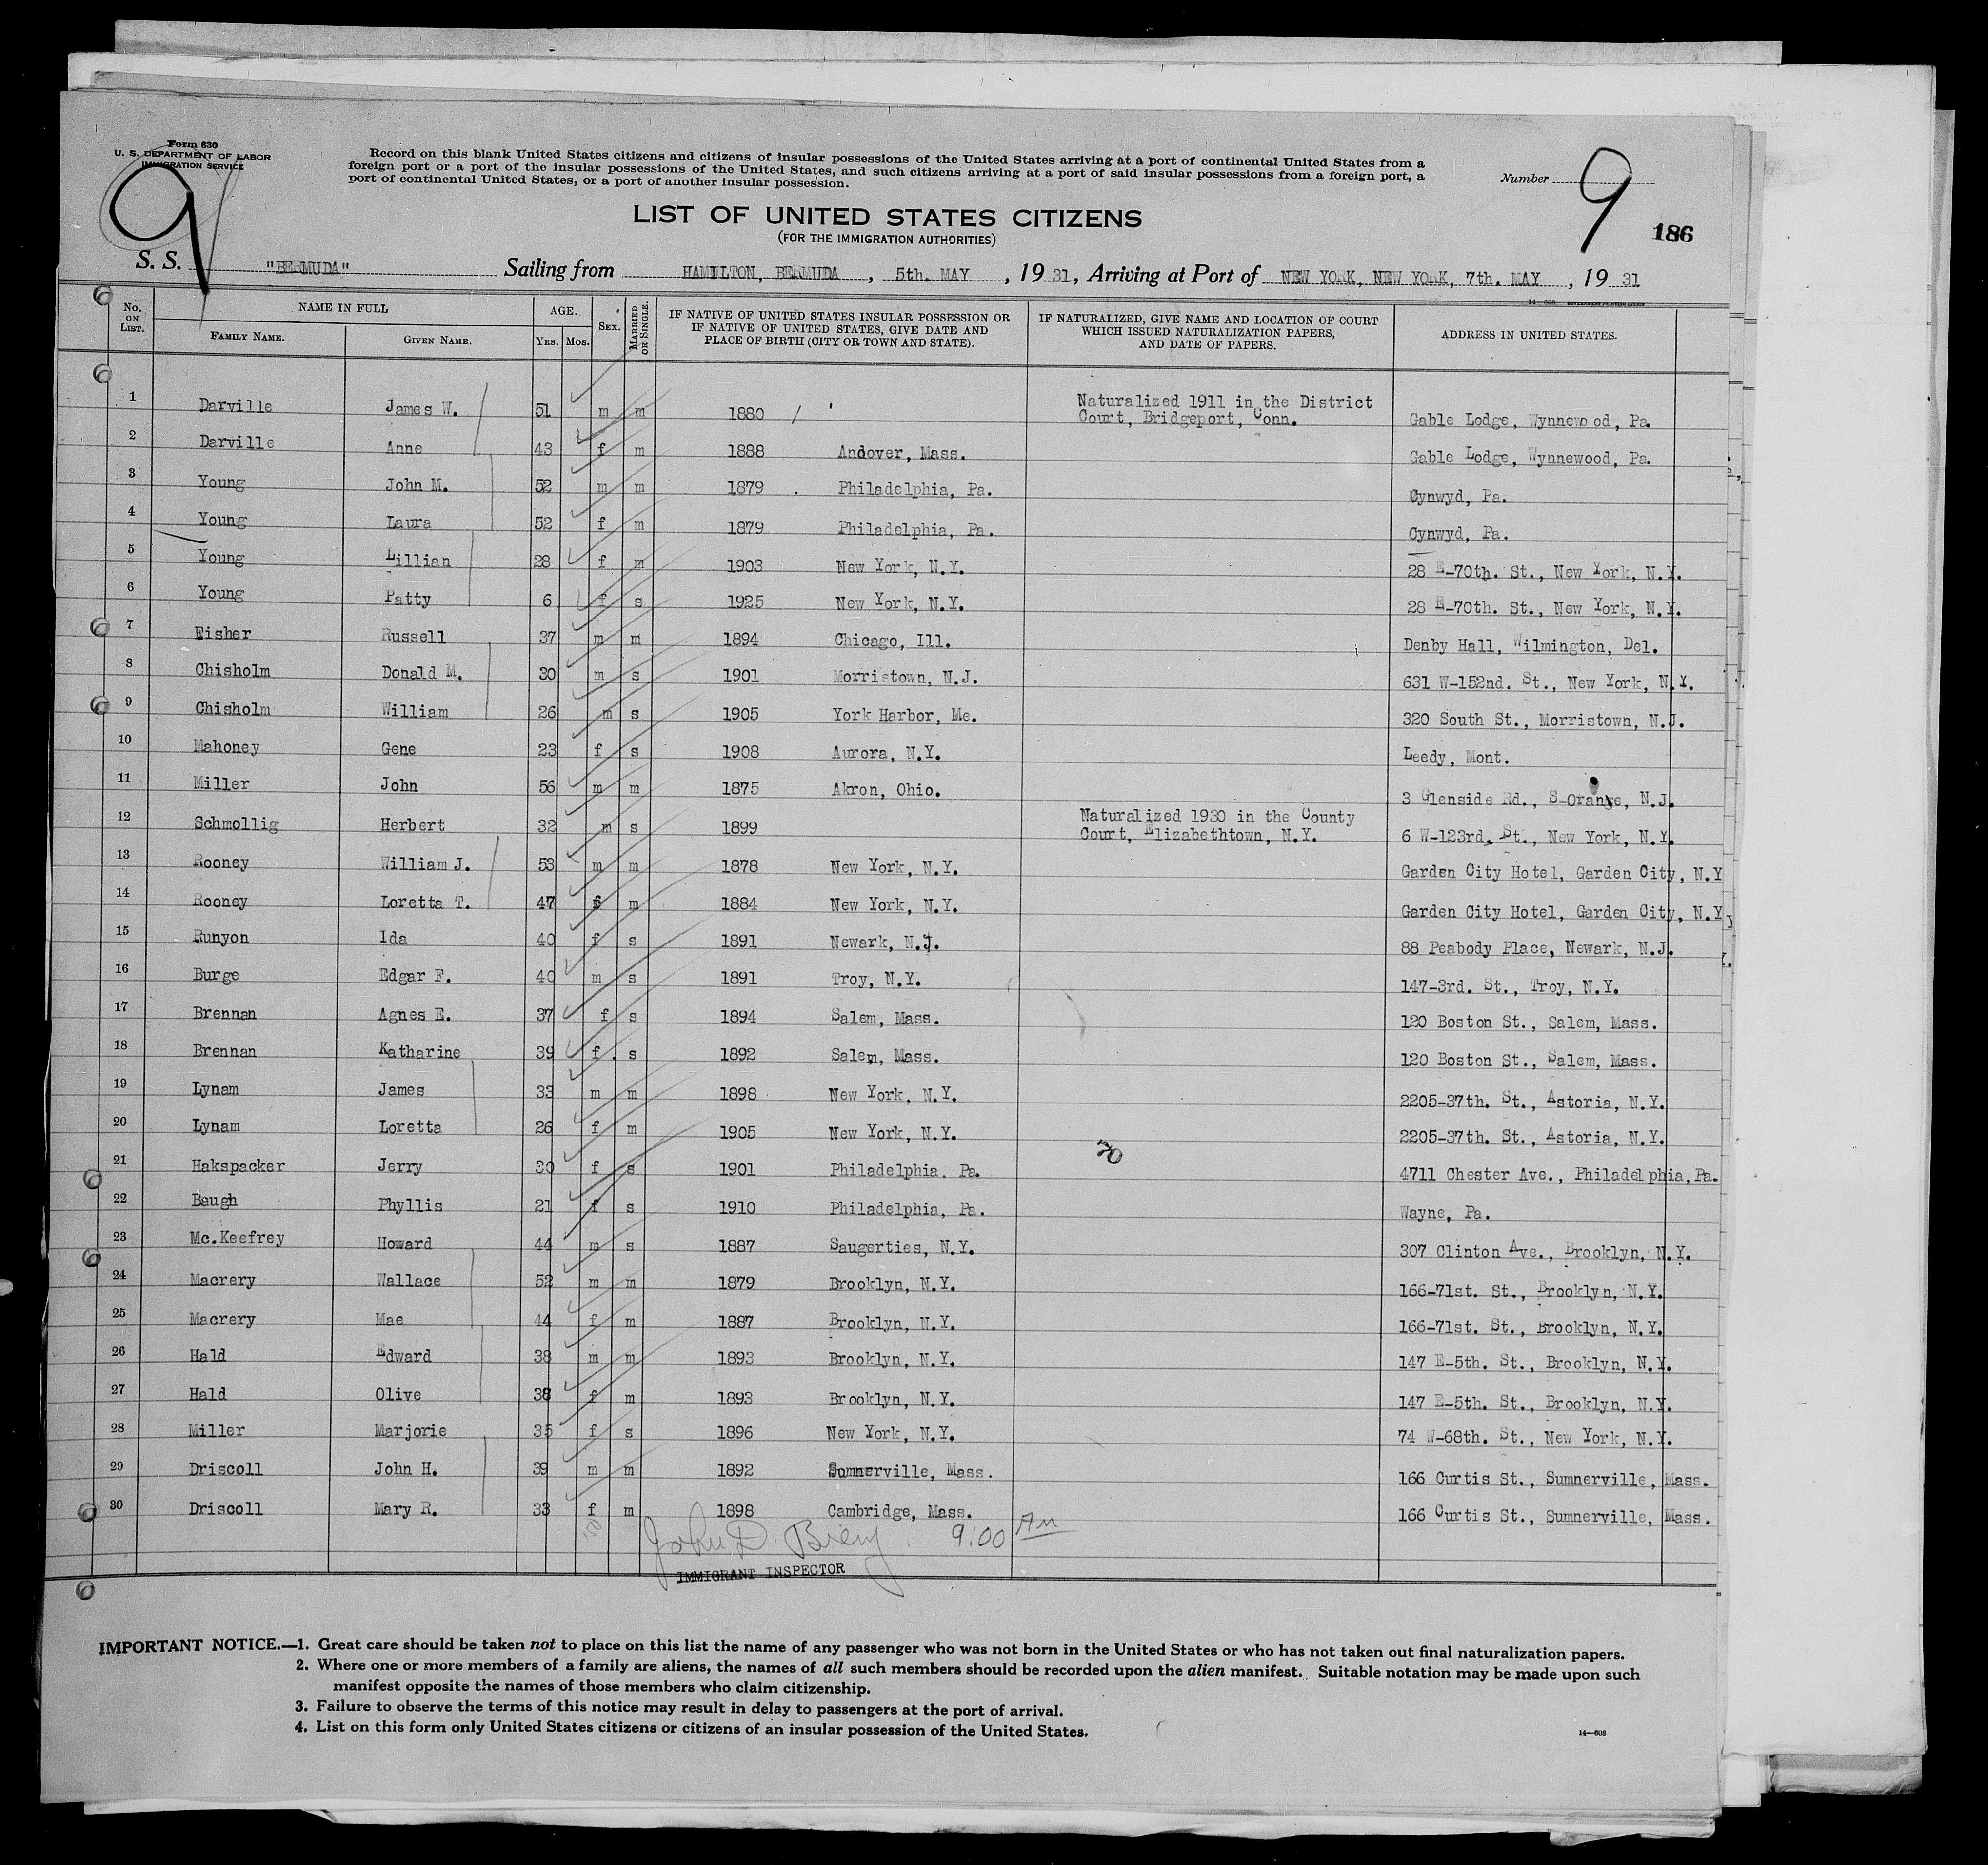 Form 630
U. S. DEPARTMENT OF LABOR
IMMIGRATION SERVICE
9
Record on this blank United States citizens and citizens of insular possessions of the United States arriving at a port of continental United States from a
foreign port or a port of the insular possessions of the United States, and such citizens arriving at a port of said insular possessions from a foreign port, a
port of continental United States, or a port of another insular possession.
Number 9
186
LIST OF UNITED STATES CITIZENS
(FOR THE IMMIGRATION AUTHORITIES)
S. S. "BERMUDA" Sailing from HAMILTON, BERMUDA, 5th. MAY, 19 31, Arriving at Port of NEW YORK, NEW YORK, 7th. MAY, 19 31
No. ON LIST. NAME IN FULL FAMILY NAME. GIVEN NAME. AGE. YRS. MOS. SEX. MARRIED OR SINGLE. IF NATIVE OF UNITED STATES INSULAR POSSESSION OR IF NATIVE OF UNITED STATES, GIVE DATE AND PLACE OF BIRTH (CITY OR TOWN AND STATE). IF NATURALIZED, GIVE NAME AND LOCATION OF COURT WHICH ISSUED NATURALIZATION PAPERS, AND DATE OF PAPERS. ADDRESS IN UNITED STATES.
1 Darville James W. 51 m m 1880 Naturalized 1911 in the District Court, Bridgeport, Conn. Gable Lodge, Wynnewood, Pa.
2 Darville Anne 43 f m 1888 Andover, Mass. Gable Lodge, Wynnewood, Pa.
3 Young John M. 52 m m 1879 Philadelphia, Pa. Cynwyd, Pa.
4 Young Laura 52 f m 1879 Philadelphia, Pa. Cynwyd, Pa.
5 Young Lillian 28 f m 1903 New York, N.Y. 28 E-70th. St., New York, N.Y.
6 Young Patty 6 f s 1925 New York, N.Y. 28 E-70th. St., New York, N.Y.
7 Fisher Russell 37 m m 1894 Chicago, Ill. Denby Hall, Wilmington, Del.
8 Chisholm Donald M. 30 m s 1901 Morristown, N.J. 631 W-152nd. St., New York, N.Y.
9 Chisholm William 26 m s 1905 York Harbor, Me. 320 South St., Morristown, N.J.
10 Mahoney Gene 23 f s 1908 Aurora, N.Y. Leedy, Mont.
11 Miller John 56 m m 1875 Akron, Ohio. 3 Glenside Rd., S-Orange, N.J.
12 Schmollig Herbert 32 m s 1899 Naturalized 1930 in the County Court, Elizabethtown, N.Y. 6 W-123rd. St., New York, N.Y.
13 Rooney William J. 53 m m 1878 New York, N.Y. Garden City Hotel, Garden City, N.Y
14 Rooney Loretta T. 47 f m 1884 New York, N.Y. Garden City Hotel, Garden City, N.Y
15 Runyon Ida 40 f s 1891 Newark, N.J. 88 Peabody Place, Newark, N.J.
16 Burge Edgar F. 40 m s 1891 Troy, N.Y. 147-3rd. St., Troy, N.Y.
17 Brennan Agnes E. 37 f s 1894 Salem, Mass. 120 Boston St., Salem, Mass.
18 Brennan Katharine 39 f s 1892 Salem, Mass. 120 Boston St., Salem, Mass.
19 Lynam James 33 m m 1898 New York, N.Y. 2205-37th. St., Astoria, N.Y.
20 Lynam Loretta 26 f m 1905 New York, N.Y. 2205-37th. St., Astoria, N.Y.
20
21 Hakspacker Jerry 30 f s 1901 Philadelphia. Pa. 4711 Chester Ave., Philadelphia, Pa.
22 Baugh Phyllis 21 f s 1910 Philadelphia, Pa. Wayne, Pa.
23 Mc.Keefrey Howard 44 m s 1887 Saugerties, N.Y. 307 Clinton Ave., Brooklyn, N.Y.
24 Macrery Wallace 52 m m 1879 Brooklyn, N.Y. 166-71st. St., Brooklyn, N.Y.
25 Macrery Mae 44 f m 1887 Brooklyn, N.Y. 166-71st. St., Brooklyn, N.Y.
26 Hald Edward 38 m m 1893 Brooklyn, N.Y. 147 E-5th. St., Brooklyn, N.Y.
27 Hald Olive 38 f m 1893 Brooklyn, N.Y. 147 E-5th. St., Brooklyn, N.Y.
28 Miller Marjorie 35 f s 1896 New York, N.Y. 74 W-68th. St., New York, N.Y.
29 Driscoll John H. 39 m m 1892 Sumnerville, Mass. 166 Curtis St., Sumnerville, Mass.
30 Driscoll Mary R. 33 f m 1898 Cambridge, Mass. 166 Curtis St., Sumnerville, Mass.
John D. 9:00 AM
IMMIGRANT INSPECTOR
IMPORTANT NOTICE.—1. Great care should be taken not to place on this list the name of any passenger who was not born in the United States or who has not taken out final naturalization papers.
2. Where one or more members of a family are aliens, the names of all such members should be recorded upon the alien manifest. Suitable notation may be made upon such
manifest opposite the names of those members who claim citizenship.
3. Failure to observe the terms of this notice may result in delay to passengers at the port of arrival.
4. List on this form only United States citizens or citizens of an insular possession of the United States.
14—608